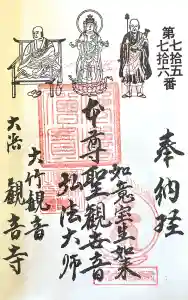 第七拾五
七拾六番
奉納経
如意宝生如来
本尊聖観世音
弘法大師
大竹観音
大治 観音寺